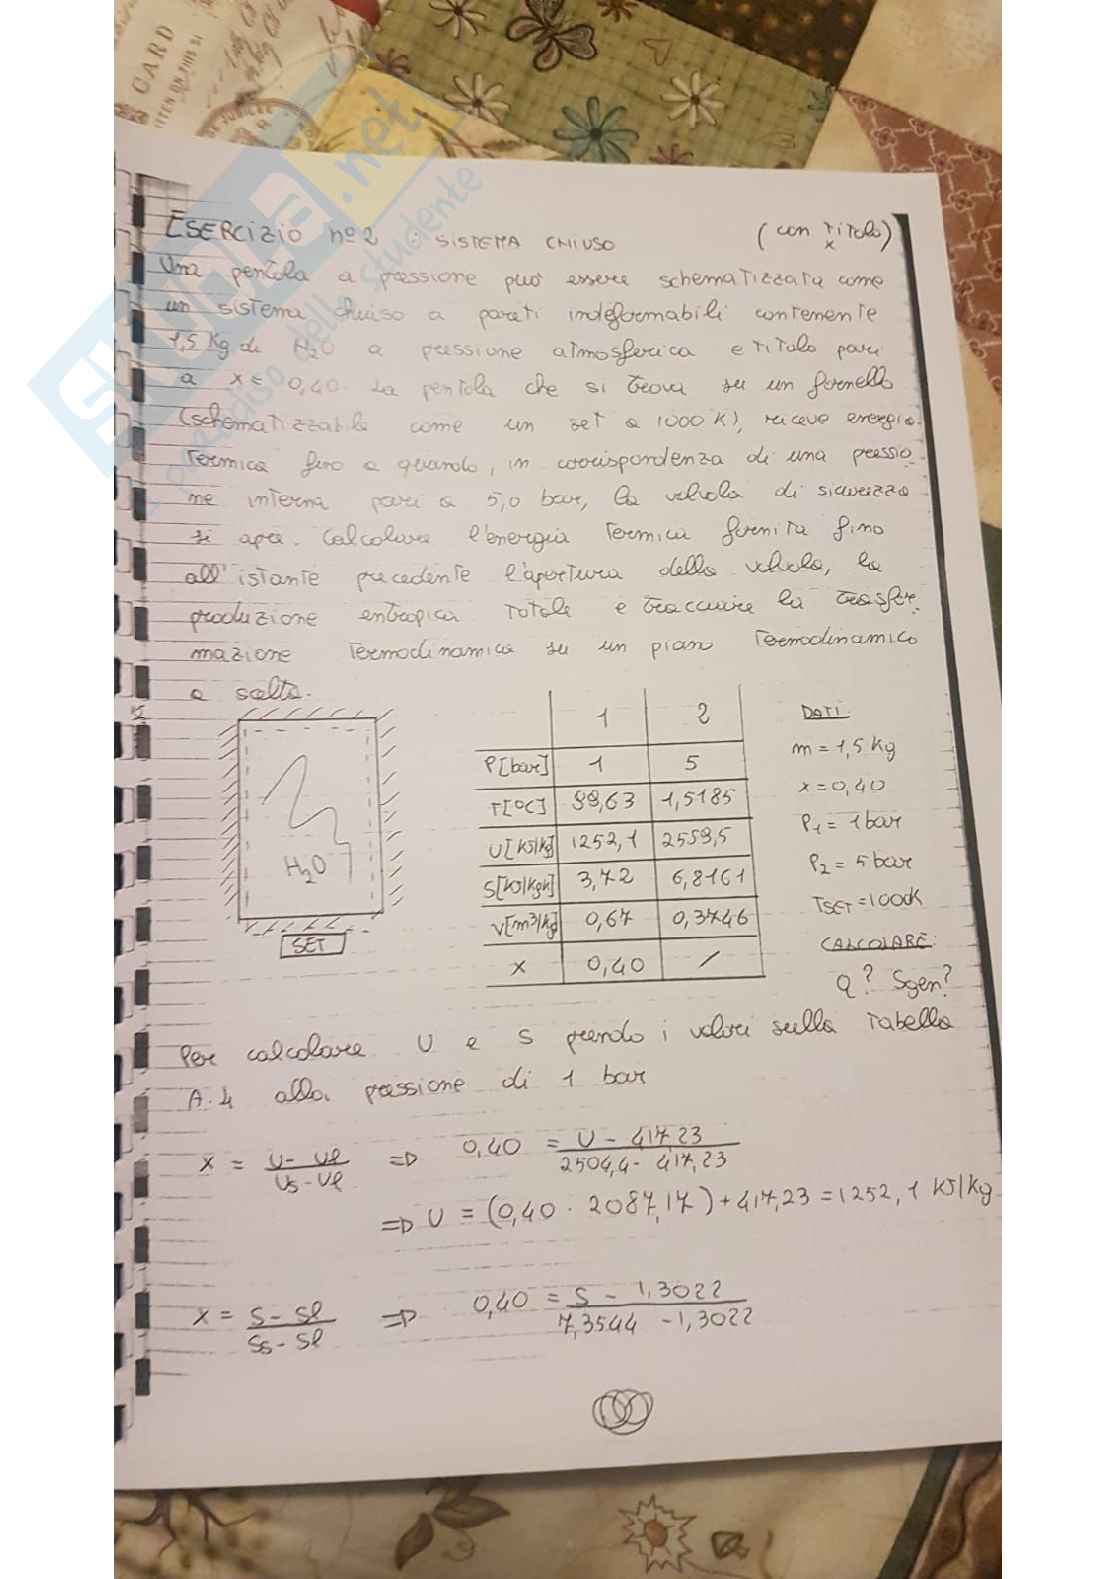 CARD
ESERCIZIO nº2: SISTEMA CHIUSO (con TITOLO)
x
Una pentola a pressione può essere schematizzata come
un sistema chiuso a pareti indeformabili contenente
1,5 Kg di H2O a pressione atmosferica e titolo pari
a x = 0,40. La pentola che si trova su un fornello
(schematizzabile come un set a 1000 K), riceve energia
termica fino a quando, in corrispondenza di una pressio
ne interna pari a 5,0 bar, la valvola di sicurezza
si apre. Calcolare l'energia termica fornita fino
all'istante precedente l'apertura della valvola, la
produzione entropica totale e tracciare la trasfor
mazione termodinamica su un piano termodinamico
a scelta.
H2O
SET
1 2
P[bar] 1 5
T[°C] 99,63 1,5185
U[kJ/kg] 1252,1 2559,5
S[kJ/kgK] 3,72 6,8161
V[m³/kg] 0,67 0,3746
x 0,40 /
DATI
m = 1,5 Kg
x = 0,40
P1 = 1 bar
P2 = 5 bar
TSET = 1000K
CALCOLARE:
Q? Sgen?
Per calcolare U e S prendo i valori sulla Tabella
A.4 alla pressione di 1 bar
x = U - Ul / Us - Ul => 0,40 = U - 417,23 / 2504,4 - 417,23
=> U = (0,40 · 2087,17) + 417,23 = 1252,1 KJ/Kg
x = S - Sl / Ss - Sl => 0,40 = S - 1,3022 / 7,3544 - 1,3022